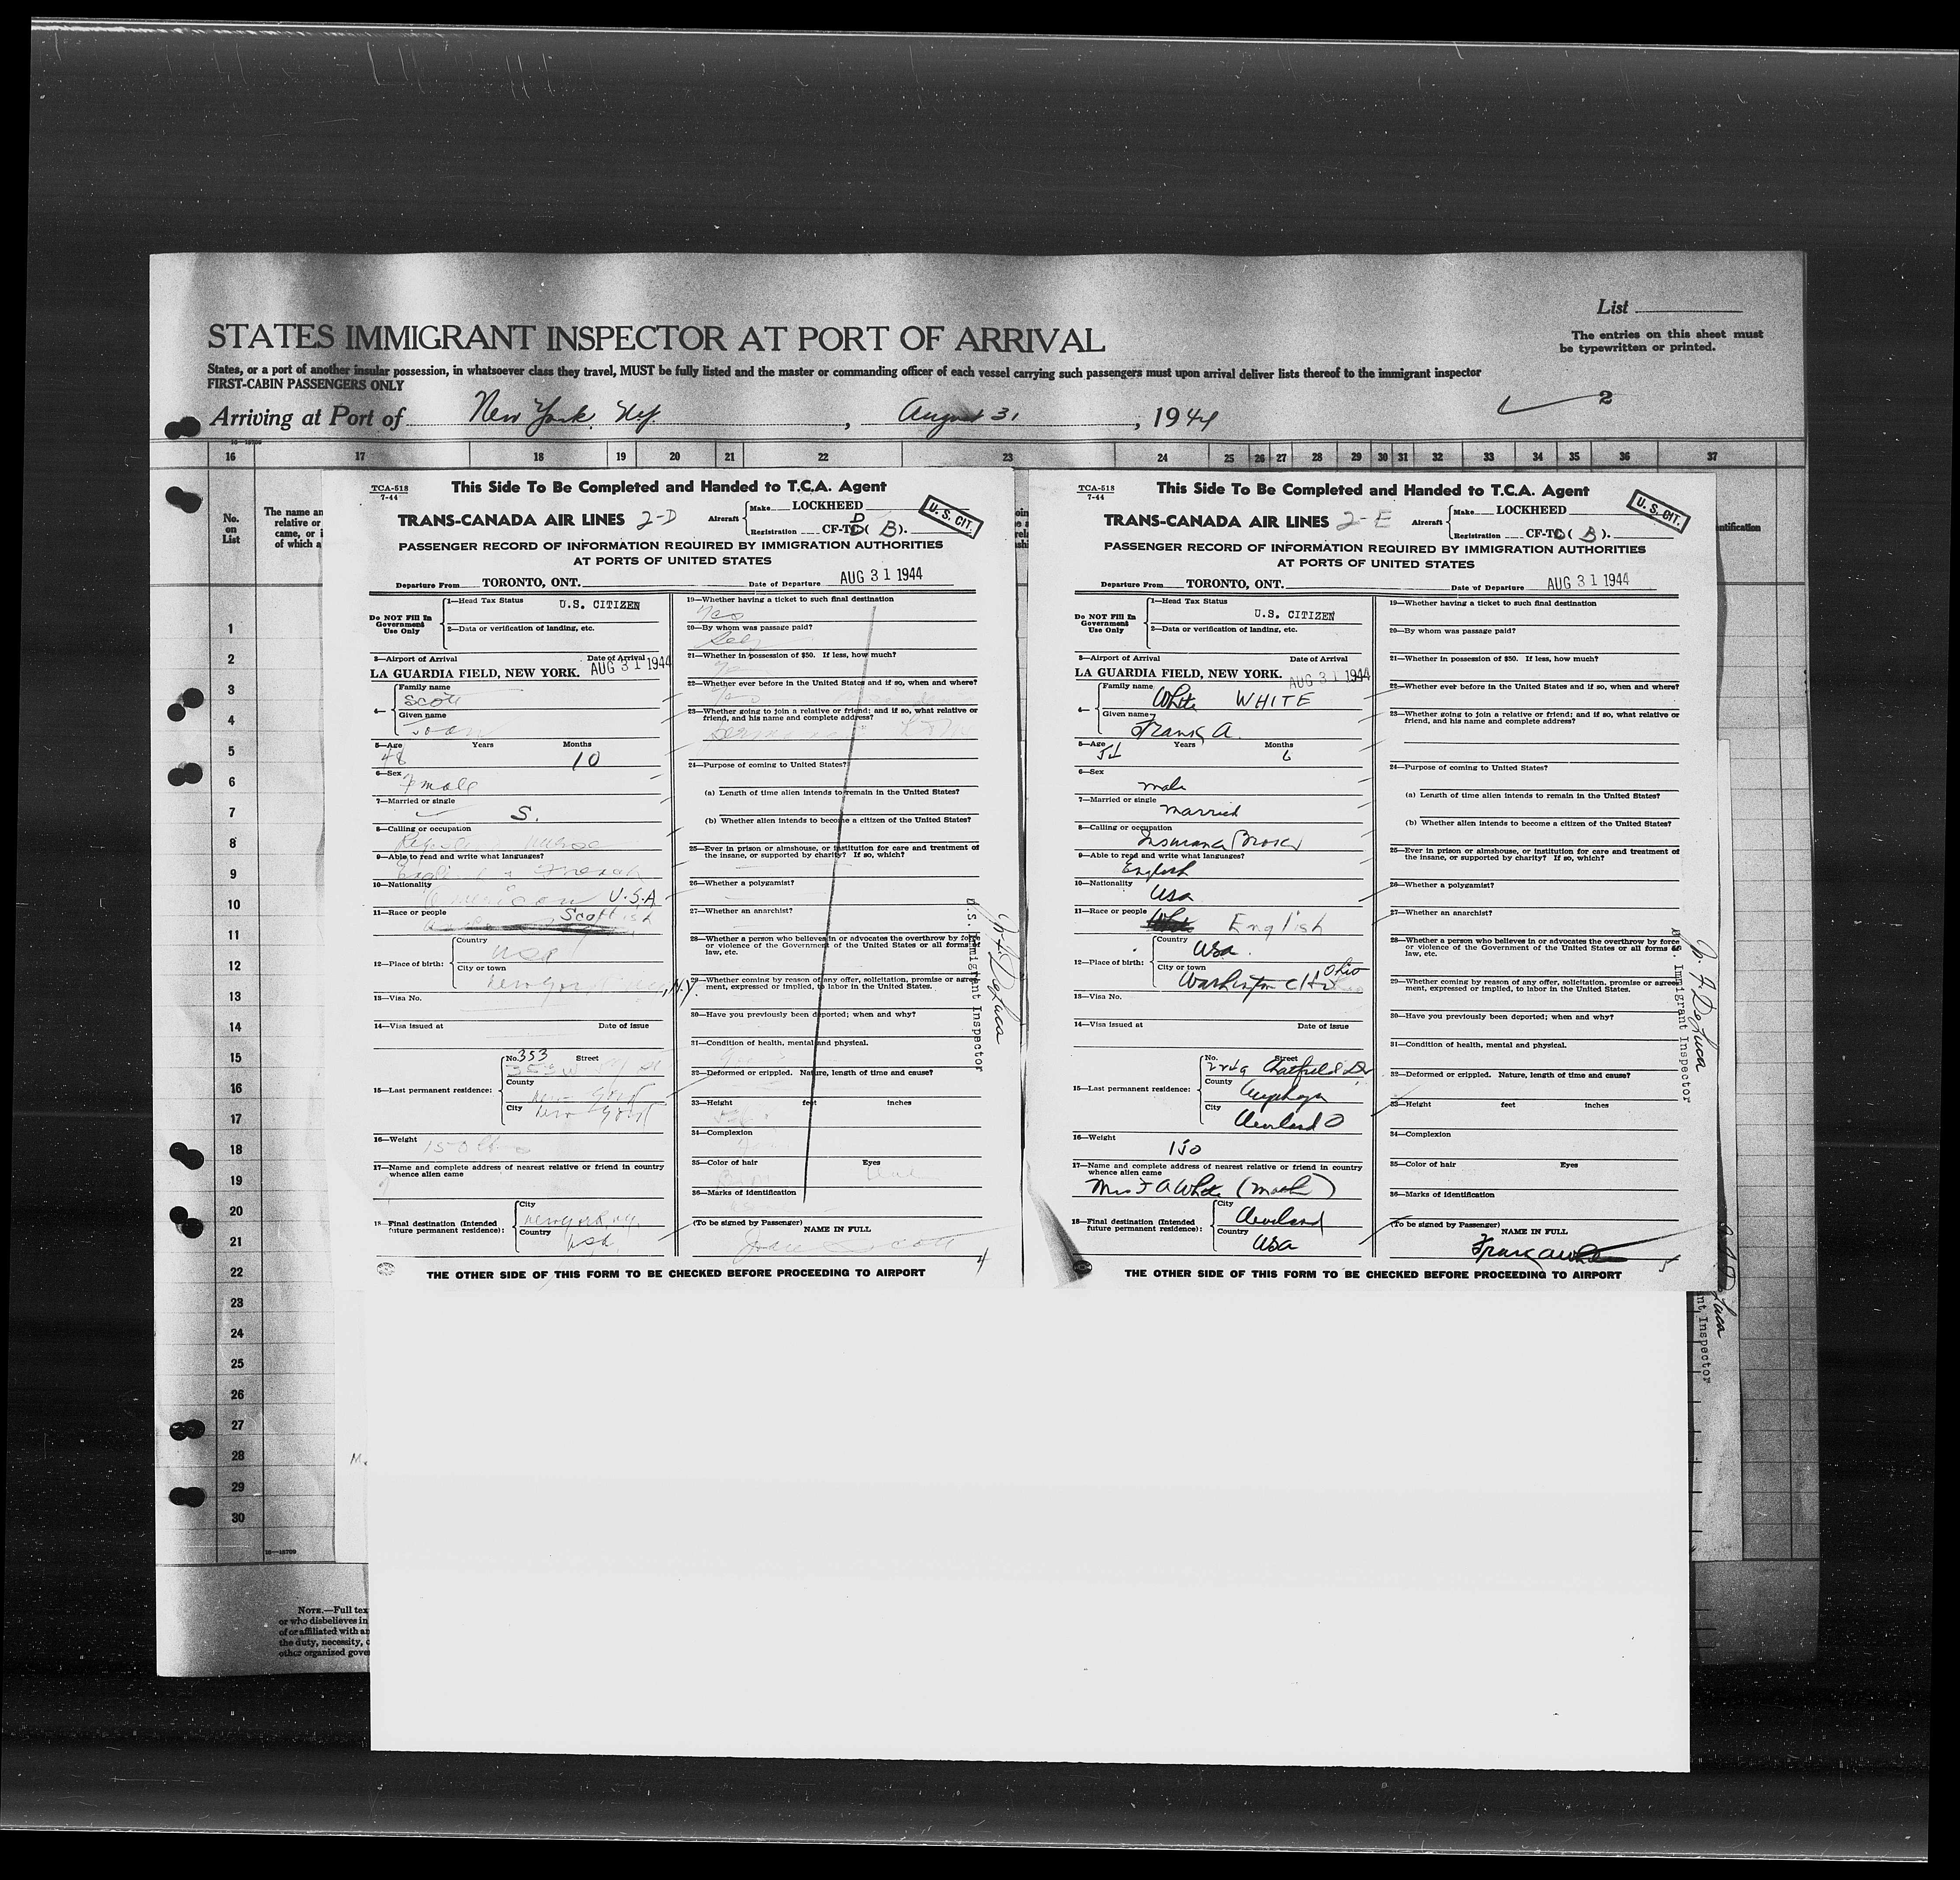 List
STATES IMMIGRANT INSPECTOR AT PORT OF ARRIVAL
The entries on this sheet must
be typewritten or printed.
States, or a port of another insular possession, in whatsoever class they travel, MUST be fully listed and the master or commanding officer of each vessel carrying such passengers must upon arrival deliver lists thereof to the immigrant inspector
FIRST-CABIN PASSENGERS ONLY
2
Arriving at Port of New York, NY. , August 31 , 1944
16 17 18 19 20 21 22 23 24 25 26 27 28 29 30 31 32 33 34 35 36 37
No.
on
List
The name an
relative or
came, or i
of which a
1
2
3
4
5
6
7
8
9
10
11
12
13
14
15
16
17
18
19
20
21
22
23
24
25
26
27
28
29
30
16—15709
NOTE.—Full tex
or who disbelieves in
of or affiliated with an
the duty, necessity, o
other organized gove
TCA-518
7-44
This Side To Be Completed and Handed to T.C.A. Agent
TRANS-CANADA AIR LINES 2-D
Aircraft
Make LOCKHEED
Registration CF-TC D ( B ).
U. S. CIT.
PASSENGER RECORD OF INFORMATION REQUIRED BY IMMIGRATION AUTHORITIES
AT PORTS OF UNITED STATES
Departure From TORONTO, ONT. Date of Departure AUG 31 1944
Do NOT Fill In
Government
Use Only
1—Head Tax Status U.S. CITIZEN
2—Data or verification of landing, etc.
3—Airport of Arrival Date of Arrival
LA GUARDIA FIELD, NEW YORK. AUG 31 1944
4— Family name
Scott
Given name
Joan
5—Age Years Months
48 10
6—Sex
Female
7—Married or single
S.
8—Calling or occupation
nurse
9—Able to read and write what languages?
English & French
10—Nationality
American U.S.A
11—Race or people Scottish
12—Place of birth: Country
USA
City or town
New York , N.Y.
13—Visa No.
14—Visa issued at Date of issue
15—Last permanent residence: No. 353 Street
353 W
County
New York
City New York
16—Weight 150 lbs
17—Name and complete address of nearest relative or friend in country
whence alien came
18—Final destination (Intended
future permanent residence):
City
New York, NY.
Country
USA
19—Whether having a ticket to such final destination
Yes
20—By whom was passage paid?
Self
21—Whether in possession of $50. If less, how much?
22—Whether ever before in the United States and if so, when and where?
23—Whether going to join a relative or friend; and if so, what relative or
friend, and his name and complete address?
24—Purpose of coming to United States?
(a) Length of time alien intends to remain in the United States?
(b) Whether alien intends to become a citizen of the United States?
25—Ever in prison or almshouse, or institution for care and treatment of
the insane, or supported by charity? If so, which?
26—Whether a polygamist?
27—Whether an anarchist?
28—Whether a person who believes in or advocates the overthrow by force
or violence of the Government of the United States or all forms of
law, etc.
29—Whether coming by reason of any offer, solicitation, promise or agree-
ment, expressed or implied, to labor in the United States.
30—Have you previously been deported; when and why?
31—Condition of health, mental and physical.
32—Deformed or crippled. Nature, length of time and cause?
33—Height feet inches
34—Complexion
35—Color of hair Eyes
36—Marks of identification
(To be signed by Passenger) NAME IN FULL
Joan Scott
4
THE OTHER SIDE OF THIS FORM TO BE CHECKED BEFORE PROCEEDING TO AIRPORT
U.S. Immigrant Inspector
DeLuca
TCA-518
7-44
This Side To Be Completed and Handed to T.C.A. Agent
TRANS-CANADA AIR LINES 2-E
Aircraft
Make LOCKHEED
Registration CF-TC D ( B ).
U. S. CIT.
PASSENGER RECORD OF INFORMATION REQUIRED BY IMMIGRATION AUTHORITIES
AT PORTS OF UNITED STATES
Departure From TORONTO, ONT. Date of Departure AUG 31 1944
Do NOT Fill In
Government
Use Only
1—Head Tax Status U.S. CITIZEN
2—Data or verification of landing, etc.
3—Airport of Arrival Date of Arrival
LA GUARDIA FIELD, NEW YORK. AUG 31 1944
4— Family name
White WHITE
Given name
Frank A.
5—Age Years Months
51 6
6—Sex
male
7—Married or single
married
8—Calling or occupation
Insurance Broker
9—Able to read and write what languages?
English
10—Nationality
USA
11—Race or people English
12—Place of birth: Country
USA.
City or town
Washington CH Ohio
13—Visa No.
14—Visa issued at Date of issue
15—Last permanent residence: No. Street
Chatfield Dr
County
Cuyahoga
City
Cleveland O
16—Weight
150
17—Name and complete address of nearest relative or friend in country
whence alien came
Mrs F A White
18—Final destination (Intended
future permanent residence):
City
Cleveland
Country
USA
19—Whether having a ticket to such final destination
20—By whom was passage paid?
21—Whether in possession of $50. If less, how much?
22—Whether ever before in the United States and if so, when and where?
23—Whether going to join a relative or friend; and if so, what relative or
friend, and his name and complete address?
24—Purpose of coming to United States?
(a) Length of time alien intends to remain in the United States?
(b) Whether alien intends to become a citizen of the United States?
25—Ever in prison or almshouse, or institution for care and treatment of
the insane, or supported by charity? If so, which?
26—Whether a polygamist?
27—Whether an anarchist?
28—Whether a person who believes in or advocates the overthrow by force
or violence of the Government of the United States or all forms of
law, etc.
29—Whether coming by reason of any offer, solicitation, promise or agree-
ment, expressed or implied, to labor in the United States.
30—Have you previously been deported; when and why?
31—Condition of health, mental and physical.
32—Deformed or crippled. Nature, length of time and cause?
33—Height feet inches
34—Complexion
35—Color of hair Eyes
36—Marks of identification
(To be signed by Passenger) NAME IN FULL
Frank A White
5
THE OTHER SIDE OF THIS FORM TO BE CHECKED BEFORE PROCEEDING TO AIRPORT
U.S. Immigrant Inspector
DeLuca
ntification
nt Inspector
Luca